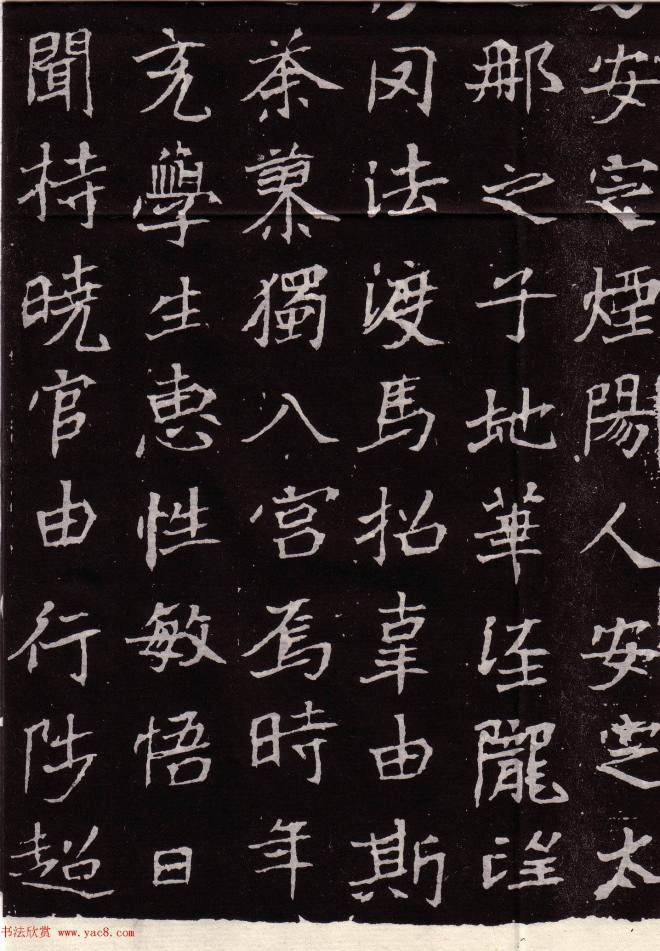 安定煙陽人安定太
那之子地華涇隴望
罔法渡馬招辜由斯
荼蓼獨入宮焉時年
充學生惠性敏悟日
聞持曉官由行陟超
书法欣赏 www.yac8.com